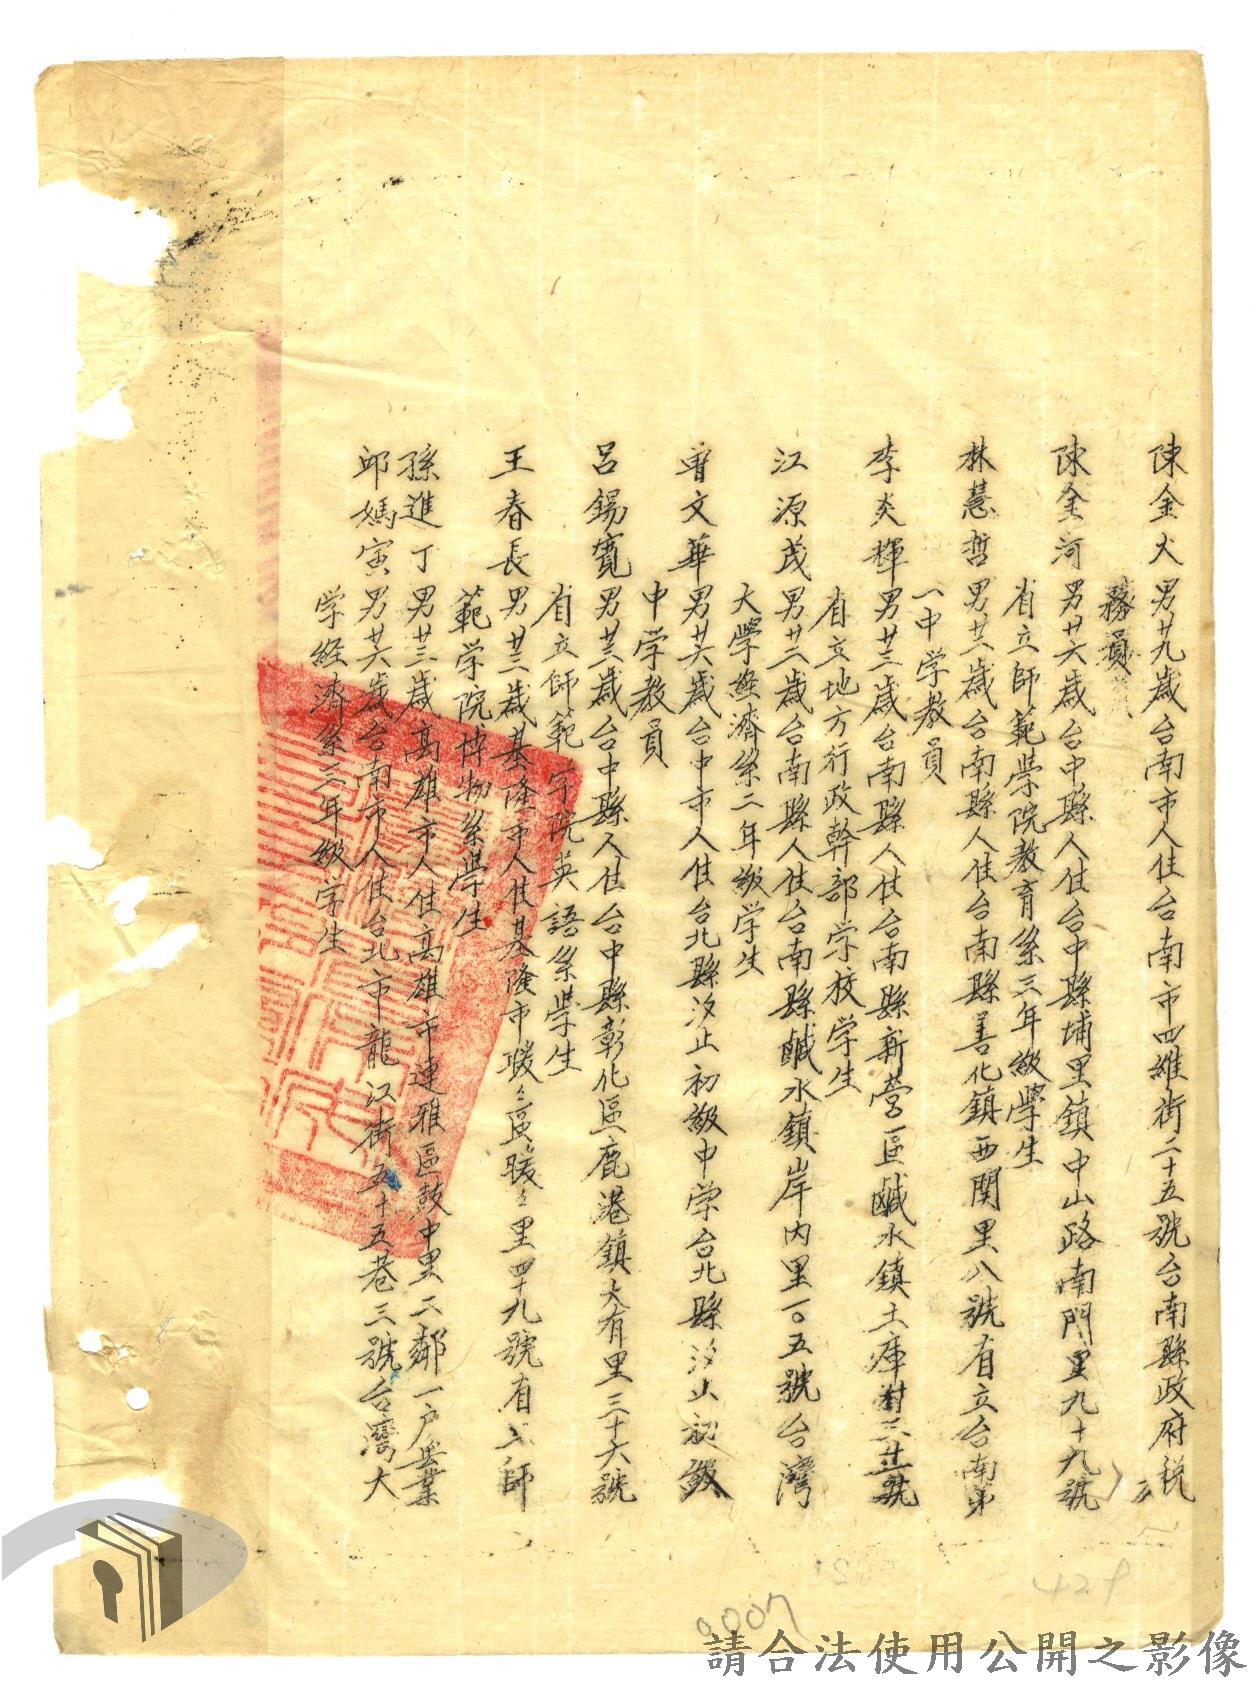 陳金火男廿九歲台南市人住台南市四維街二十五號台南縣政府稅
務員
陳金河男廿六歲台中縣人住台中縣埔里鎮中山路南門里九十九號
省立師範學院教育系三年級學生
林慧哲男廿六歲台南縣人住台南縣善化鎮西關里八號省立台南第
一中学教員
李炎輝男廿三歲台南縣人住台南縣新營區鹹水鎮土庫
省立地方行政幹部学校学生
江源茂男廿二歲台南縣人住台南縣鹹水鎮岸內里一〇五號台灣
大學經濟系二年級学生
曾文華男廿六歲台中市人住台北縣汐止初級中学台北縣汐止初級
中学教員
呂錫寬男廿三歲台中縣人住台中縣彰化區鹿港鎮大有里三十六號
省立師範学院英語系學生
王春長男廿三歲基隆市人住基隆市暖々區暖々里四十九號省立師
範学院博物系學生
孫進丁男廿三歲高雄市人住高雄市連雅區鼓中里二鄰一户無業
邱媽寅男廿六歲台南市人住台北市龍江街五十五巷三號台灣大
学經濟系三年級学生
0007
429
請合法使用公開之影像